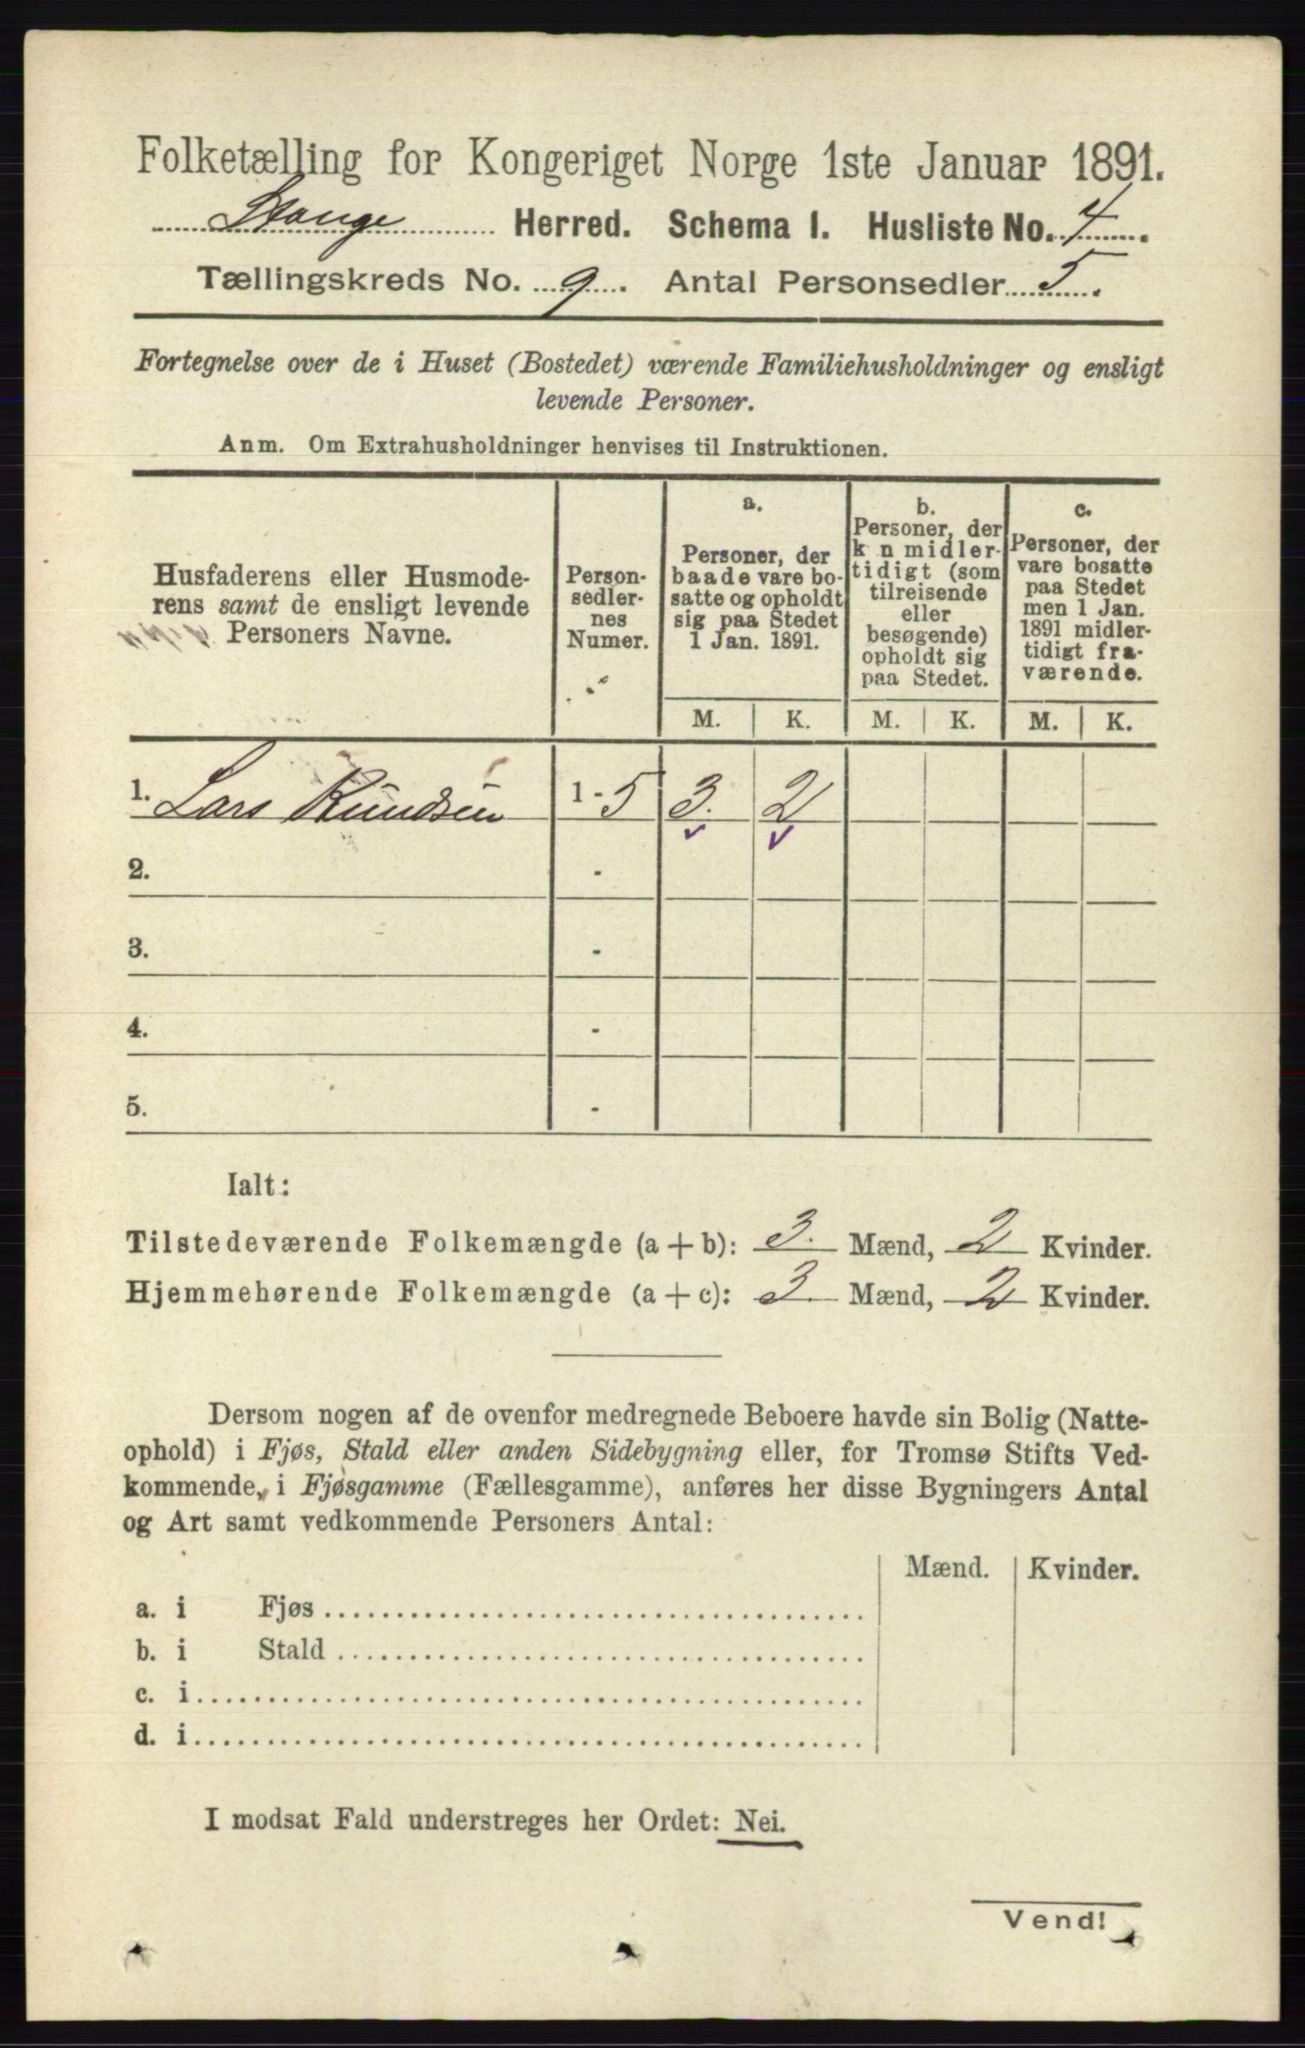 Folketælling for Kongeriget Norge 1ste Januar 1891.
Stange Herred. Schema I. Husliste No. 4.
Tællingskreds No. 9. Antal Personsedler 5.
Fortegnelse over de i Huset (Bostedet) værende Familiehusholdninger og ensligt
levende Personer.
Anm. Om Extrahusholdninger henvises til Instruktionen.
Husfaderens eller Husmode-
rens samt de ensligt levende
Personers Navne.
Person-
sedler-
nes
Numer.
a.
Personer, der
baade vare bo-
satte og opholdt
sig paa Stedet
1 Jan. 1891.
b.
Personer, der
k n midler-
tidigt (som
tilreisende
eller
besøgende)
opholdt sig
paa Stedet.
c.
Personer, der
vare bosatte
paa Stedet
men 1 Jan.
1891 midler-
tidigt fra-
værende.
M. K. M. K. M. K.
1. Lars Knudsen 1 - 5 3. 2
2. -
3. -
4. -
5. -
Ialt:
Tilstedeværende Folkemængde (a + b): 3. Mænd, 2 Kvinder.
Hjemmehørende Folkemængde (a + c): 3. Mænd, 2 Kvinder.
Dersom nogen af de ovenfor medregnede Beboere havde sin Bolig (Natte-
ophold) i Fjøs, Stald eller anden Sidebygning eller, for Tromsø Stifts Ved-
kommende, i Fjøsgamme (Fællesgamme), anføres her disse Bygningers Antal
og Art samt vedkommende Personers Antal:
Mænd. Kvinder.
a. i Fjøs
b. i Stald
c. i
d. i
I modsat Fald understreges her Ordet: Nei.
Vend!